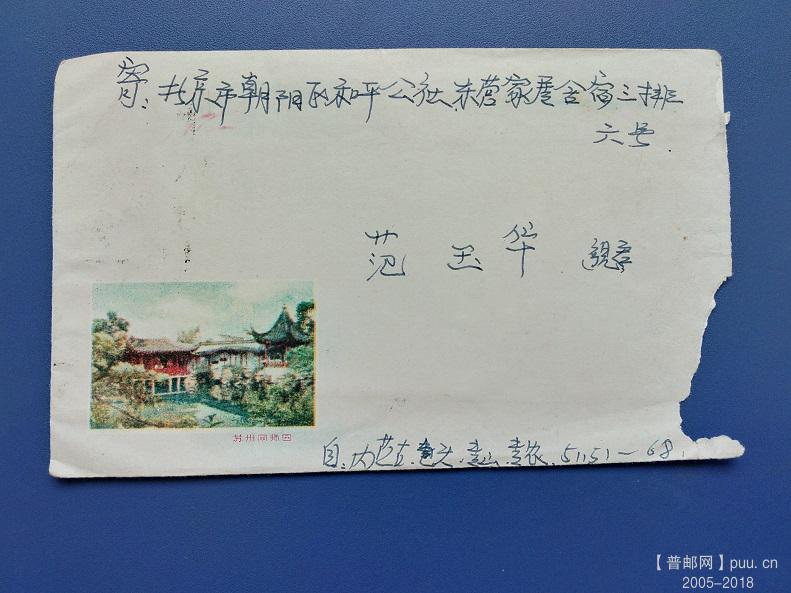 寄：北京市朝阳区和平公社东营家属宿舍三排
六号
范玉华 亲启
苏州网师园
自：内蒙古·包头·51151－68
【普邮网】puu.cn
2005-2018